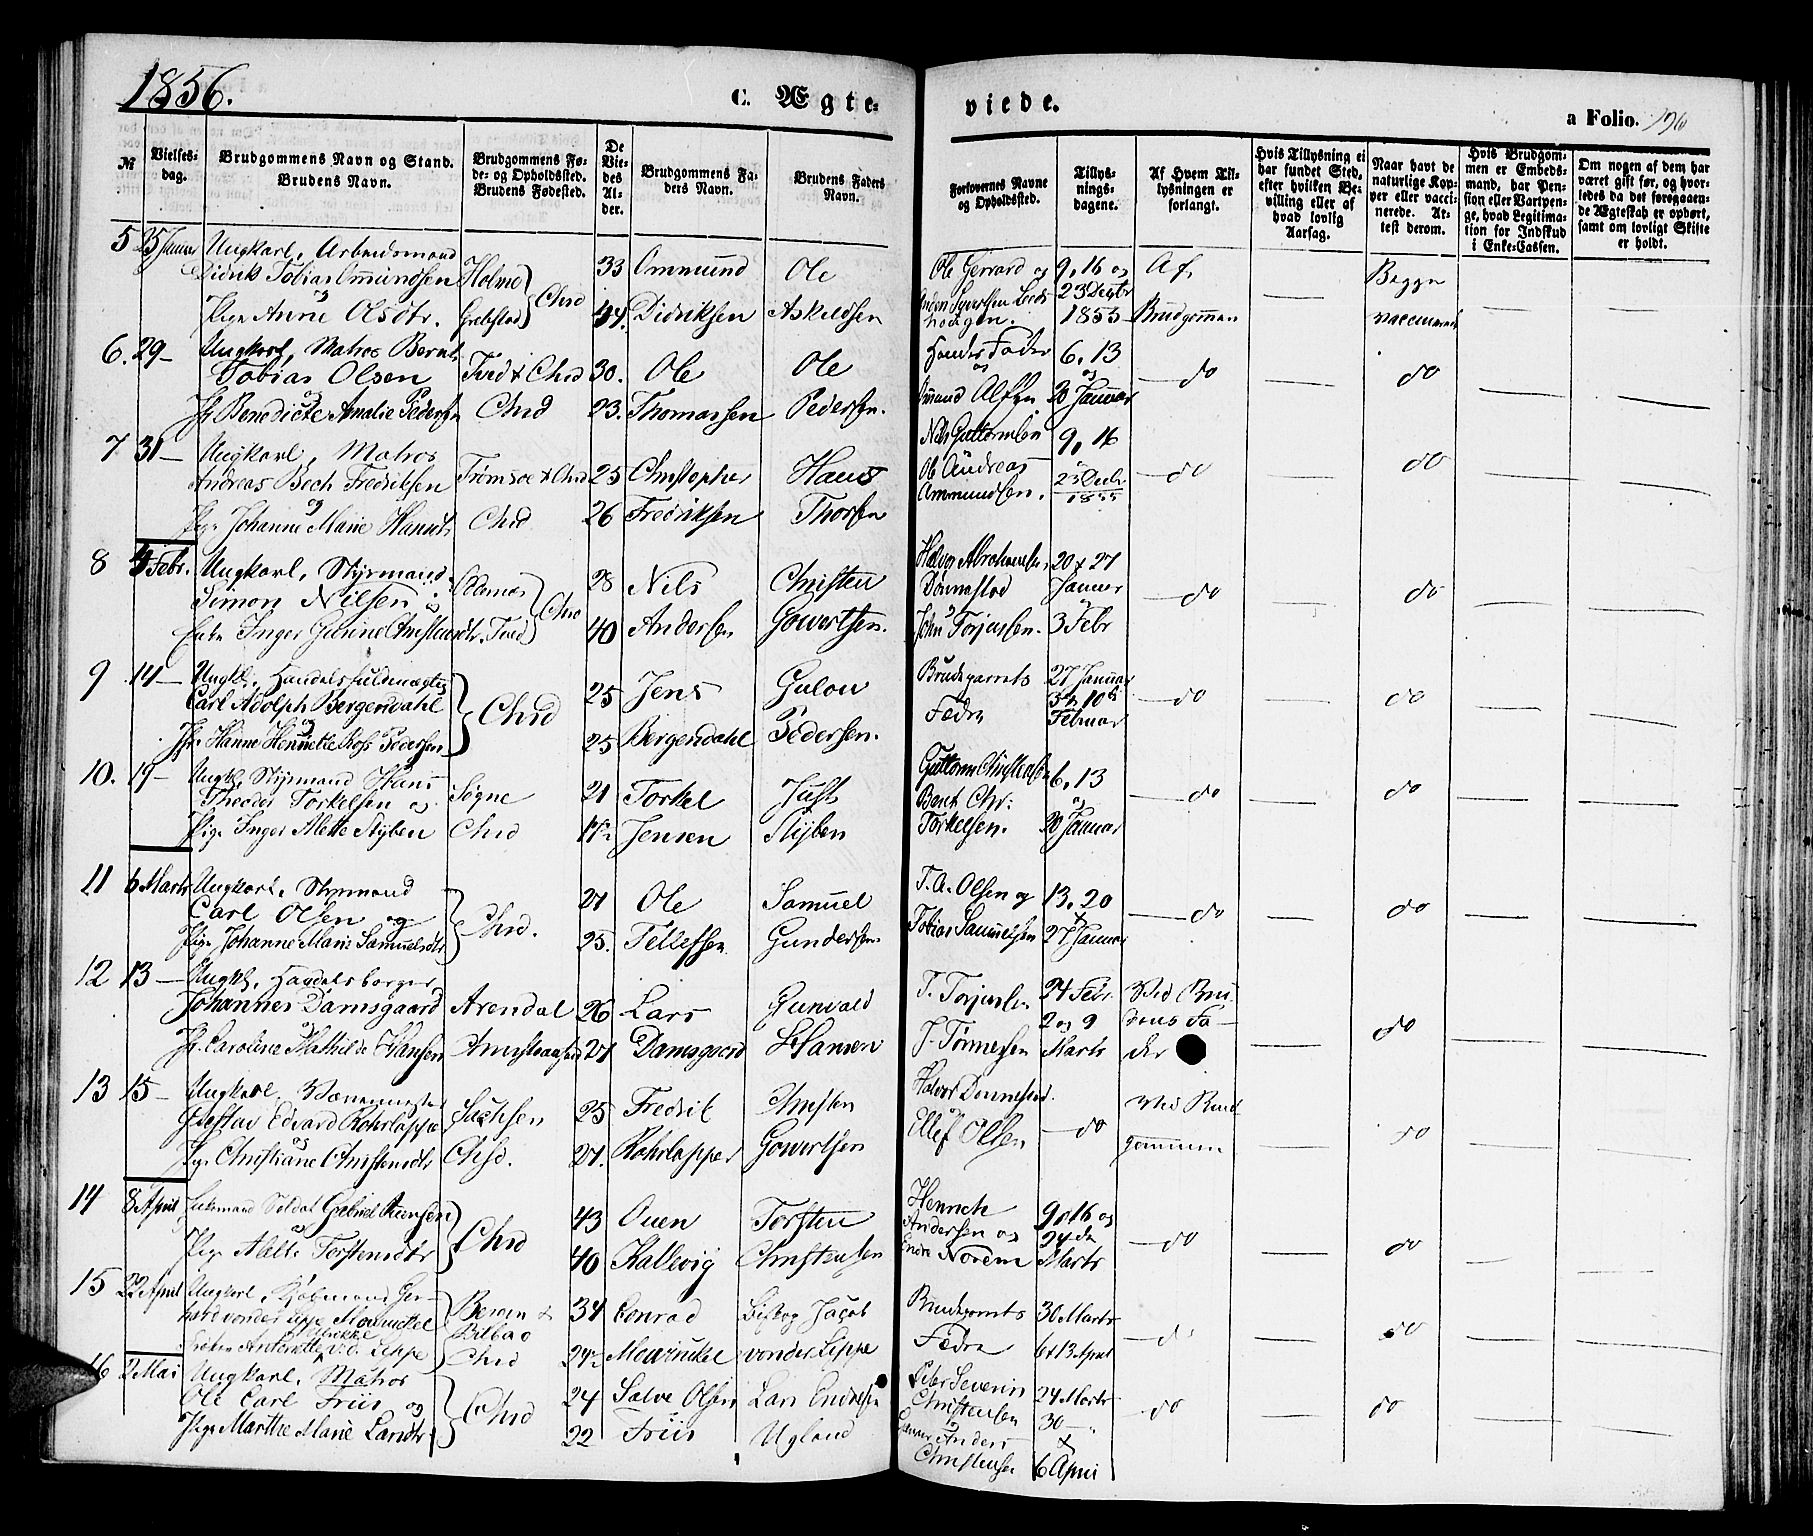 1856.
C. Ægteviede.
a Folio. 196
№
Vielsesdag.
Brudgommens Navn og Stand. Brudens Navn.
Brudgommens Føde- og Opholdssted. Brudens Fødested.
De Viedes Alder.
Brudgommens Faders Navn.
Brudens Faders Navn.
Forlovernes Navne og Opholdssted.
Tillysningsdagene.
Af Hvem Tillysningen er forlangt.
Hvis Tillysning ei har fundet Sted, efter hvilken Bevilling eller af hvad lovlig Aarsag.
Naar havt de naturlige Kopper eller vaccinerede. Attest derom.
Hvis Brudgommen er Embedsmand, har Pension eller Vartpenge, hvad Legitimation for Indskud i Enke-Cassen.
Om nogen af dem har været gift før, og hvorledes da det foregaaende Ægteskab er ophørt, samt om lovligt Skifte er holdt.
5 25 Januar Ungkarl, Arbeidsmand Didrik Tobias Omundsen Holme Chsd 33 Ommund Ole Ole Gerrard og 9, 16 og Af Begge
og Pige Anne Olsdtr. Grebstad 44. Didriksen Askildsen 23 Decbr 1855 Brudgommen vaccinerede
6. 29 – Ungkarl, Matros Bernt Tobias Olsen Tved & Chsd 30. Ole Ole Hendes Fader 6. 13 do do
og Jfr Benedicte Amalie Pedersen Chsd 23. Thomassen Pedersen. og 20 Januar
7 31 – Ungkarl, Matros Andreas Boch Fredriksen Tromsøe & Chsd 25 Christopher Hans Nils Guttormsen 9, 16 do do
og Pige Johanne Marie Hansdtr Chsd 26 Fredriksen Thorsen Ole Andreas Ommundsen. 23 Decbr 1855
8 4 Febr. Ungkarl, Styrmand Simon Nilsen og Chsd 28 Nils Christen Halvor Abrahamsen Dønnestad 20 & 27 Januar do do
Enke Inger Gurine Christensdtr. Tved 40 Andersen Gowertsen. John Torjussen. 3 Febr
9 14 – Ungkl. Handelsfuldmægtig Carl Adolph Bergendahl Chsd 25 Jens Gulow Brudeparrets 27 Januar do do
og Jfr. Hanne Henriette Ross Pedersen 25 Bergendahl Pedersen. Fedre 3 og 10de Februar
10. 19 – Ungkl. Styrmand Hans Theodor Torkelsen og Søgne 21 Torkel Just Guttorm Christensen 6. 13 do do
Pige Inger Alette Styben Chsd Jensen Styben Bent Chr. Torkelsen. og 20 Januar
11 6 Marts Ungkarl. Styrmand Carl Olsen og Chsd. 27 Ole Samuel T. A. Olsen og 13. 20 do do
Pige Johanne Marie Samuelsdtr 25. Tellefsen Gundersen Tobias Samuelsen & 27 Januar
12 13 – Ungkl. Handelsborger Johannes Damsgaard Arendal 26 Lars Gunvald T. Torjussen 24 Febr. Ved Brudens Fader do
og Jfr. Caroline Mathilde Hansen 27 Damsgaard Hansen J. Tønnessen 2 og 9 Marts
13 15 – Ungkarl, Gustav Edvard Rohrlapper Sachsen 25 Fredrik Christen Halvor Dønnestad. do Ved Brudgommen do
og Pige Christiane Christensdtr Chsd. 27. Rohrlapper Gowertsen Ellef Olsen
14 8 April Soldat Gabriel Ouensen Chsd 43 Ouen Torsten Henrich Andersen og 9, 16 og do do
og Pige Alette Torstensdtr 40 Kallevig Christensen Endre Norem 24de Marts
15 22 April Ungkarl, Kjøbmand Gerhard von der Lippe Mowinckel Bergen & Bilbao 34 Conrad Biskop Jacob Brudeparrets 30 Marts do do
Frøken Antonette Ulrikke v. d. Lippe Chsd Mowinckel von der Lippe Fedre 6 & 13 April
16 2 Mai Ungkarl, Matros Ole Carl Friis og Chsd 24 Salve Olsen Lars Endresen Peder Severin Christensen 24 Marts do do
Pige Marthe Marie Larsdtr 22 Friis Ugland og Anders Christensen 30 – & 6 April